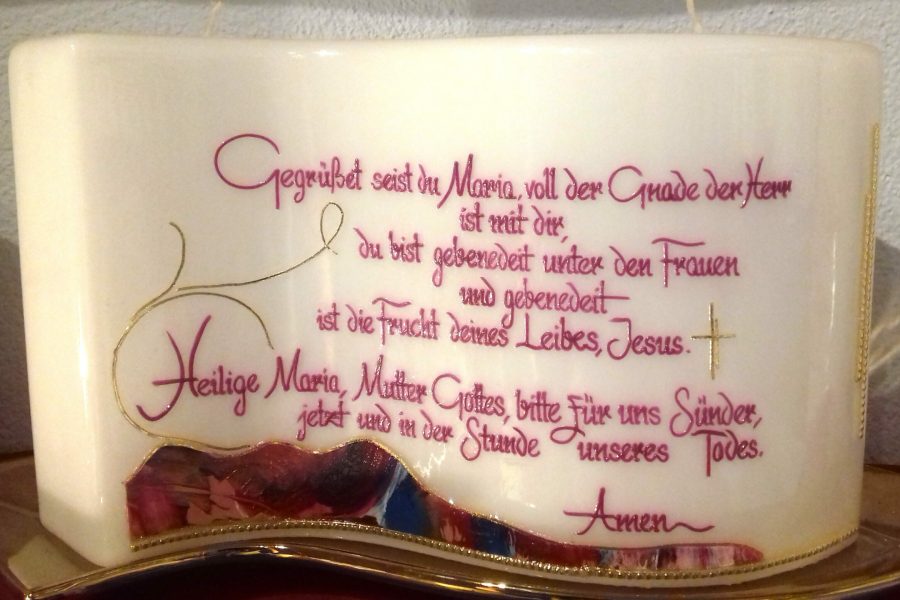 Gegrüßet seist du Maria, voll der Gnade der Herr
ist mit dir,
du bist gebenedeit unter den Frauen
und gebenedeit
ist die Frucht deines Leibes, Jesus.
Heilige Maria, Mutter Gottes, bitte für uns Sünder,
jetzt und in der Stunde unseres Todes.
Amen